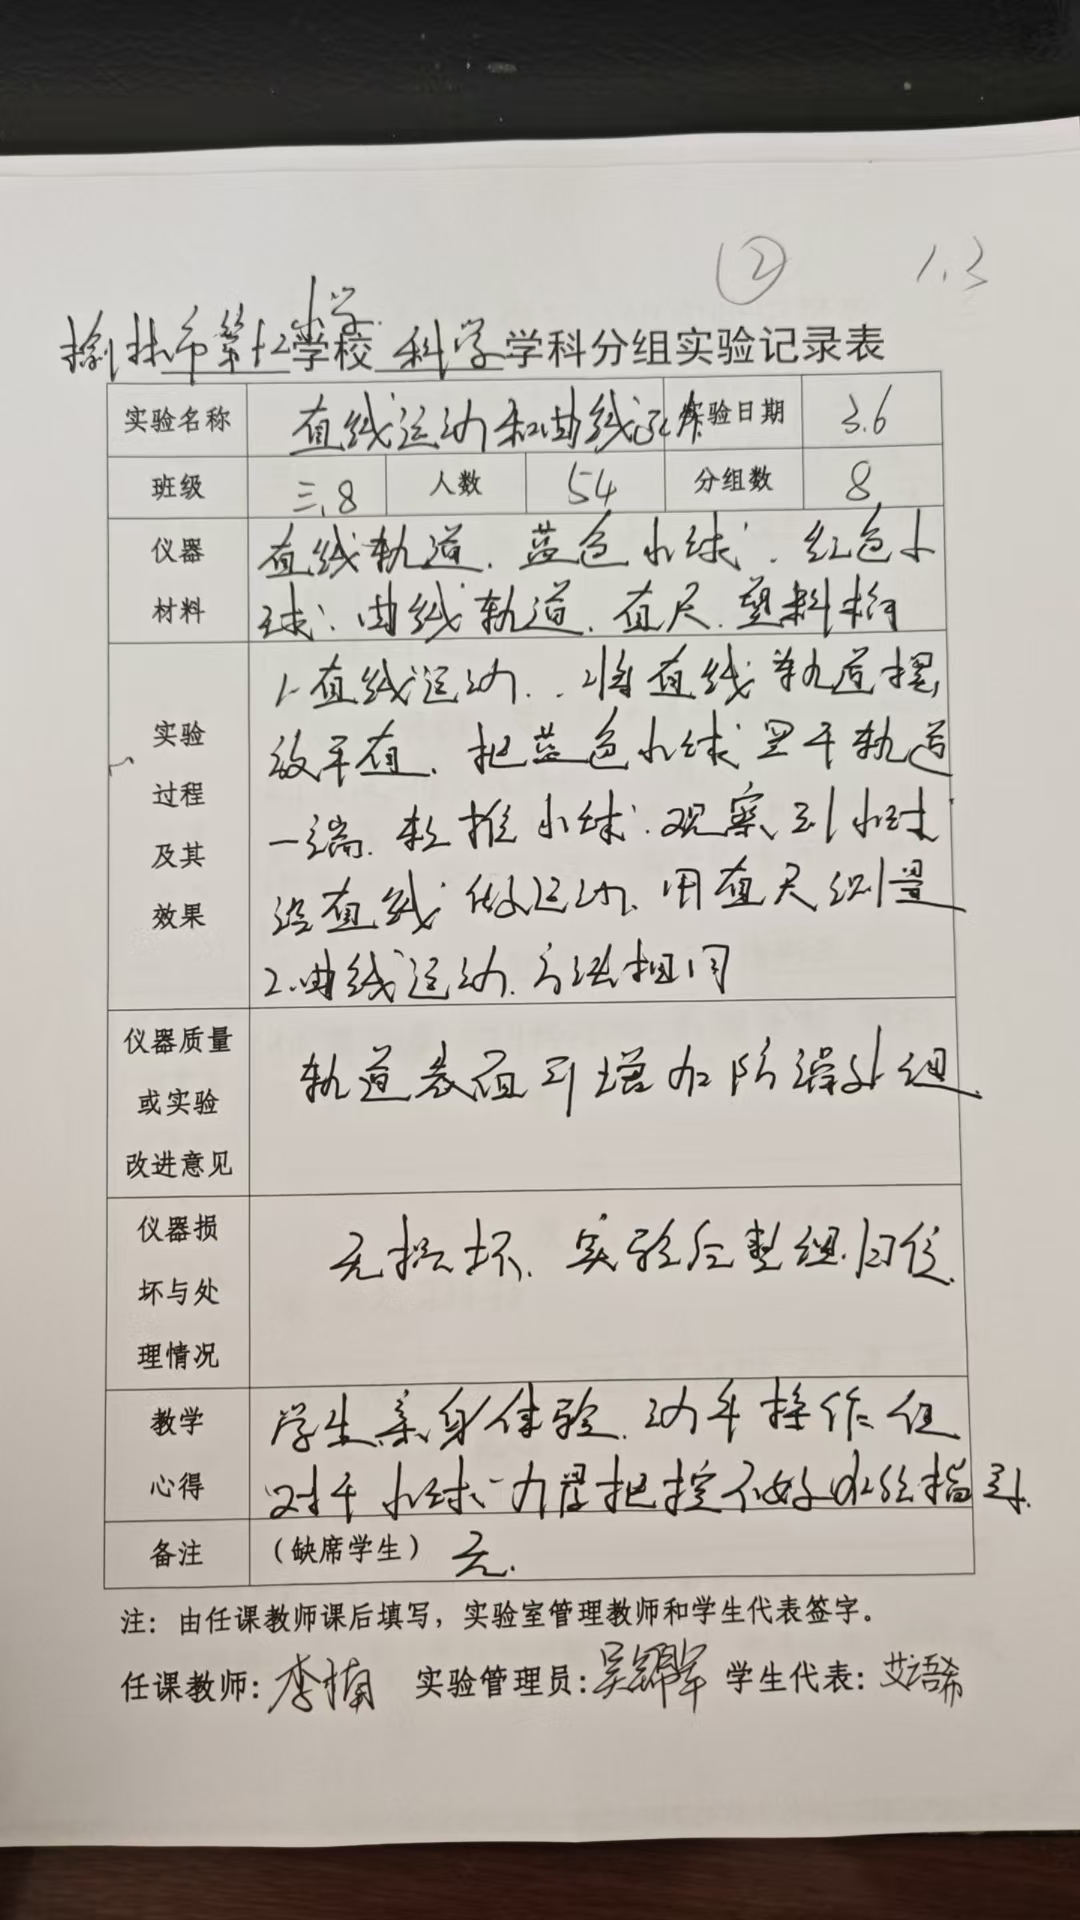 ② 1.3
小学
榆林市第十二学校 科学 学科分组实验记录表
实验名称 直线运动和曲线运动 实验日期 3.6
班级 三.8 人数 54 分组数 8
仪器材料
直线轨道、蓝色小球、红色小
球、曲线轨道、直尺、塑料椅
实验过程及其效果
1.直线运动、将直线轨道摆
放平直、把蓝色小球置于轨道
一端、轻推小球、观察到小球
沿直线做运动、用直尺测量
2.曲线运动、方法相同
仪器质量或实验改进意见
轨道表面可增加防滑
仪器损坏与处理情况
无损坏、实验后整组归位
教学心得
学生亲身体验、动手操作但
对于小球力量把控不好 指导
备注 (缺席学生) 无.
注：由任课教师课后填写，实验室管理教师和学生代表签字。
任课教师：李楠 实验管理员：吴锦军 学生代表：艾语希